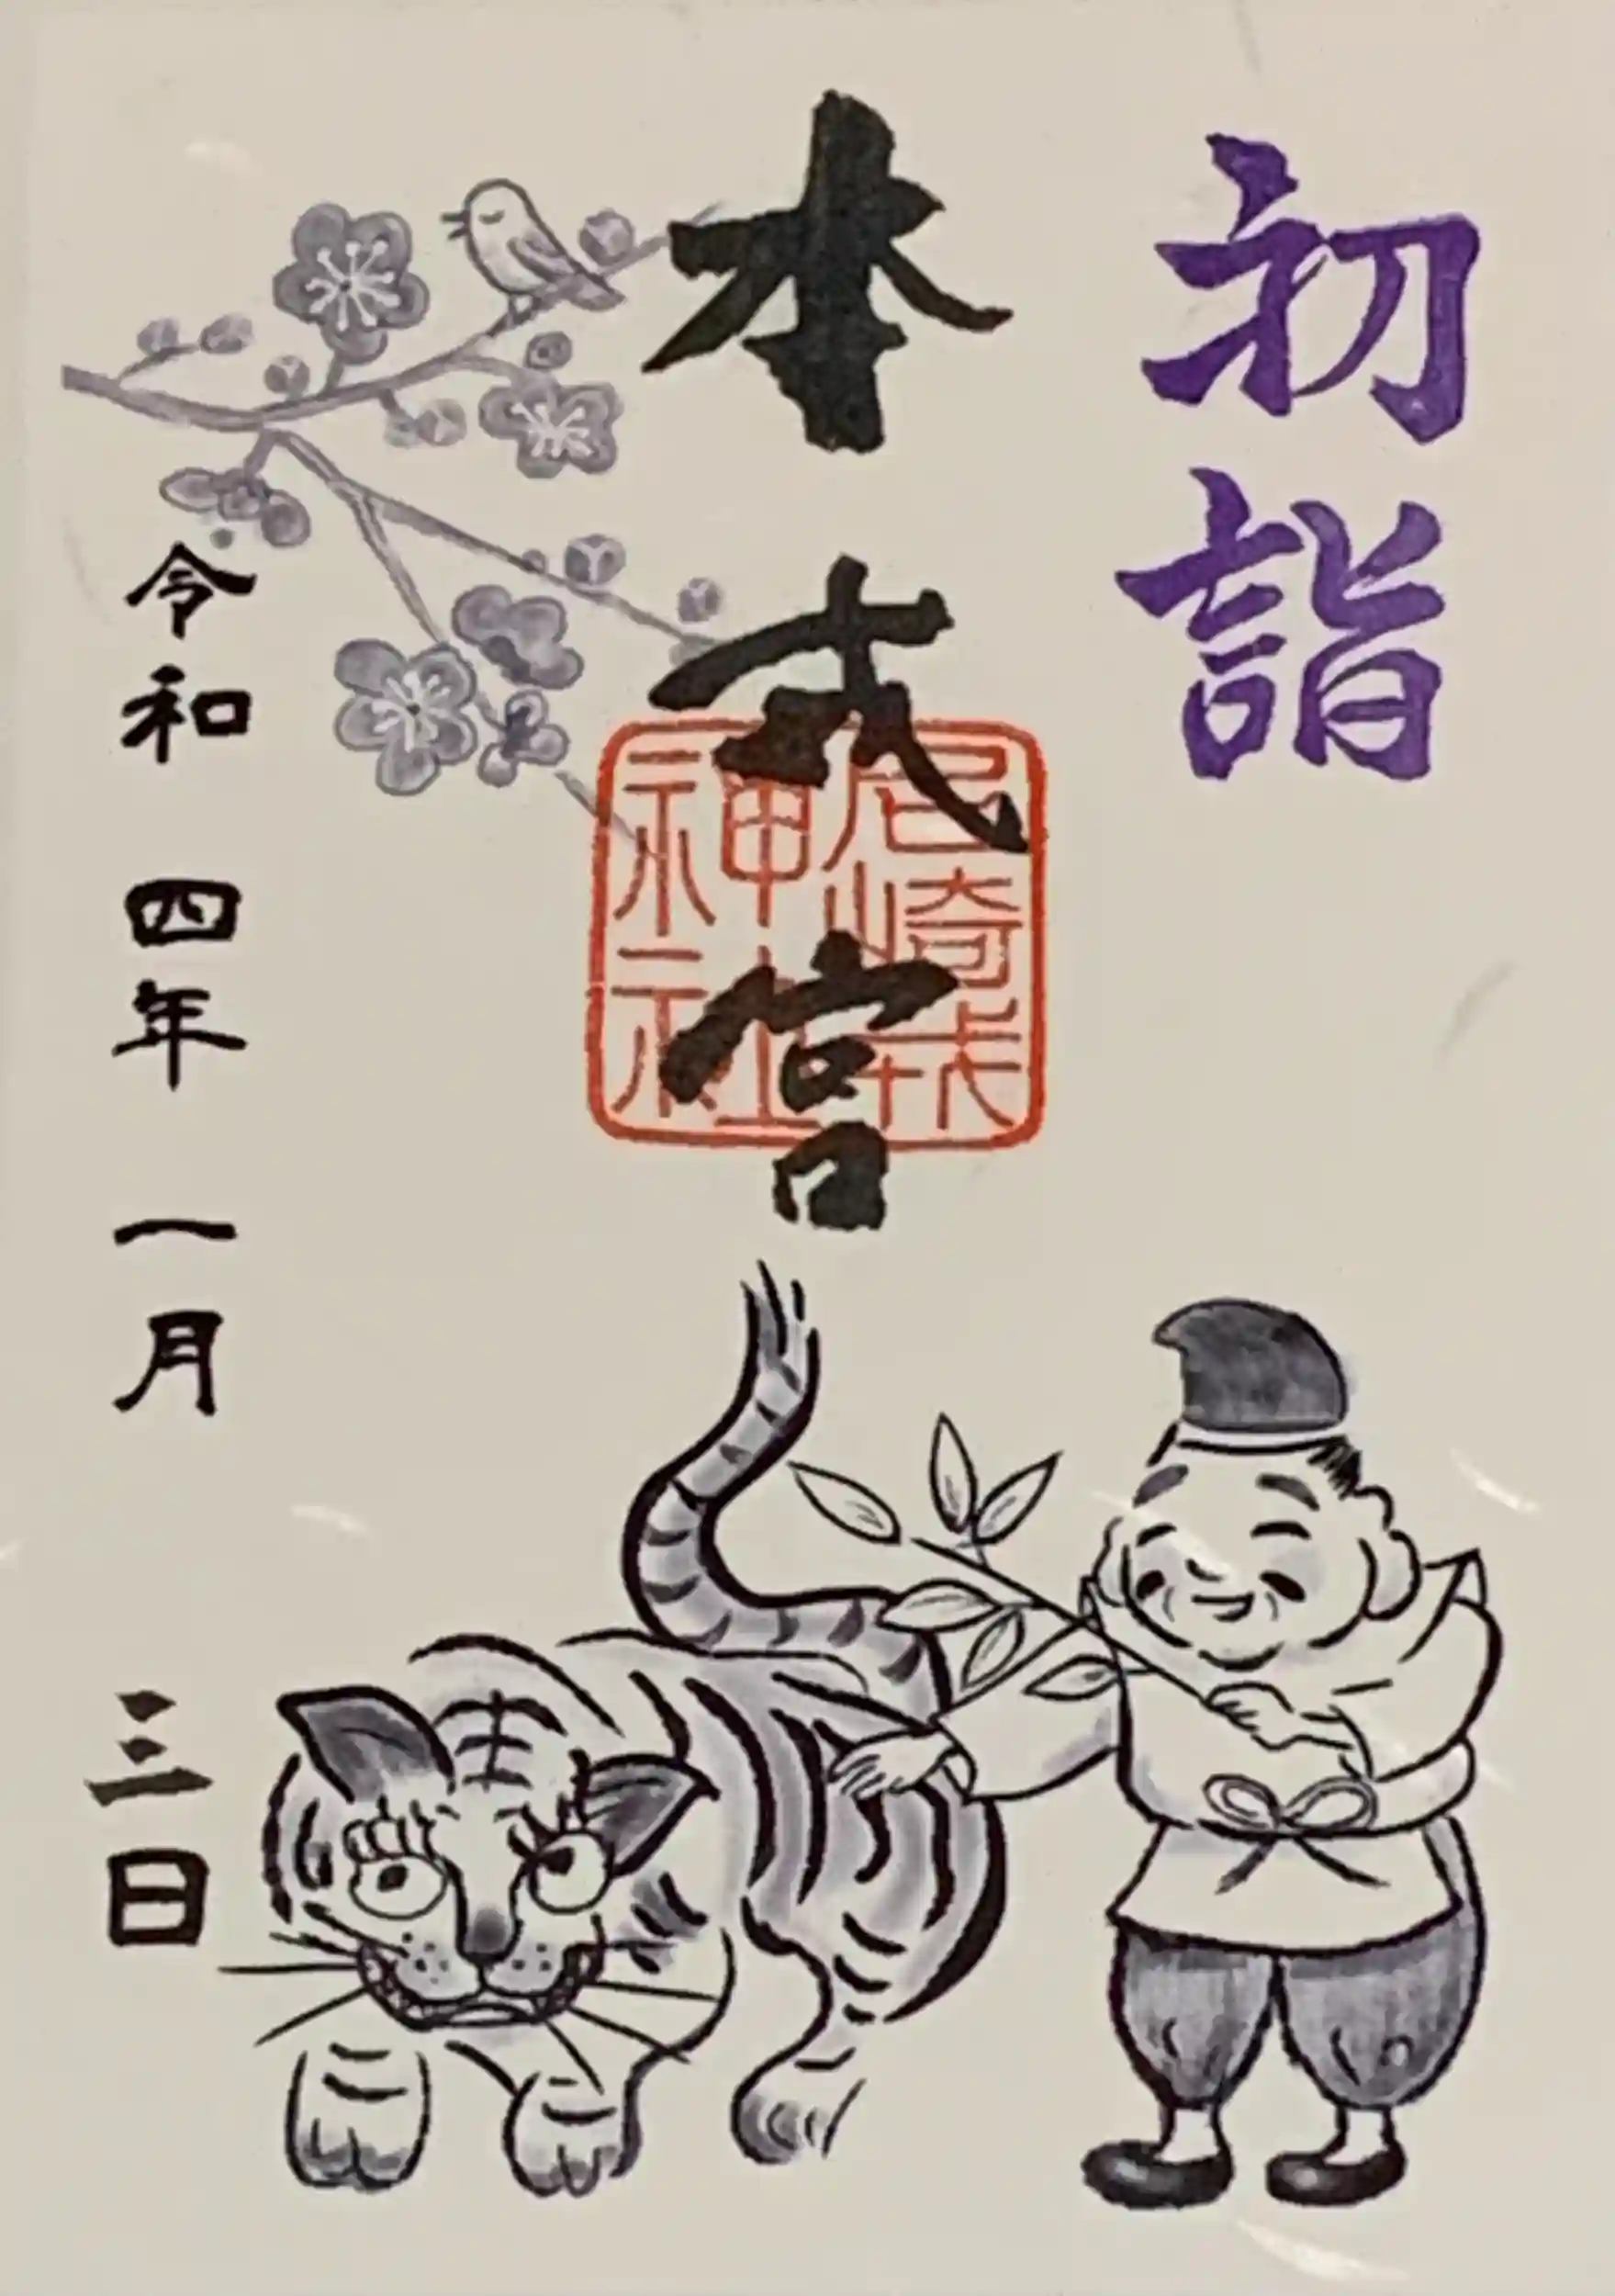 初詣
本戎宮
尼崎戎
神社
令和四年一月三日